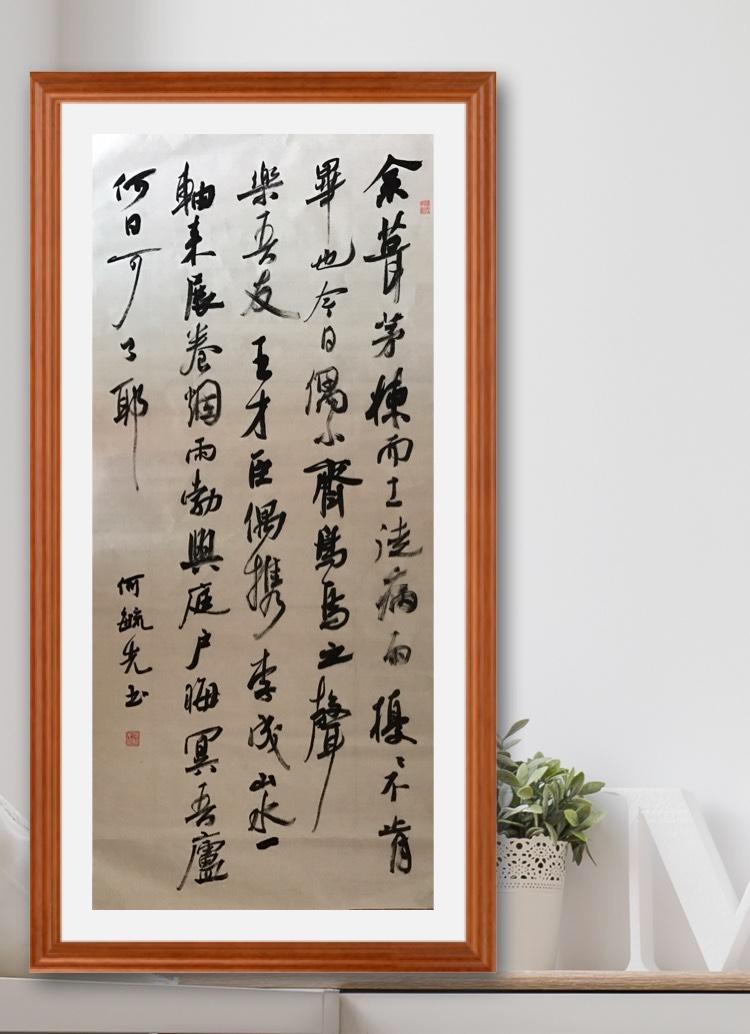 余葺茅棟而土徒病雨擾〻不肯
畢也今日偶小齋為焉之聲
樂吾友王才臣偶携李成山水一
軸来展卷烟雨勃興庭户晦冥吾廬
何日可了耶
何毓先书
M